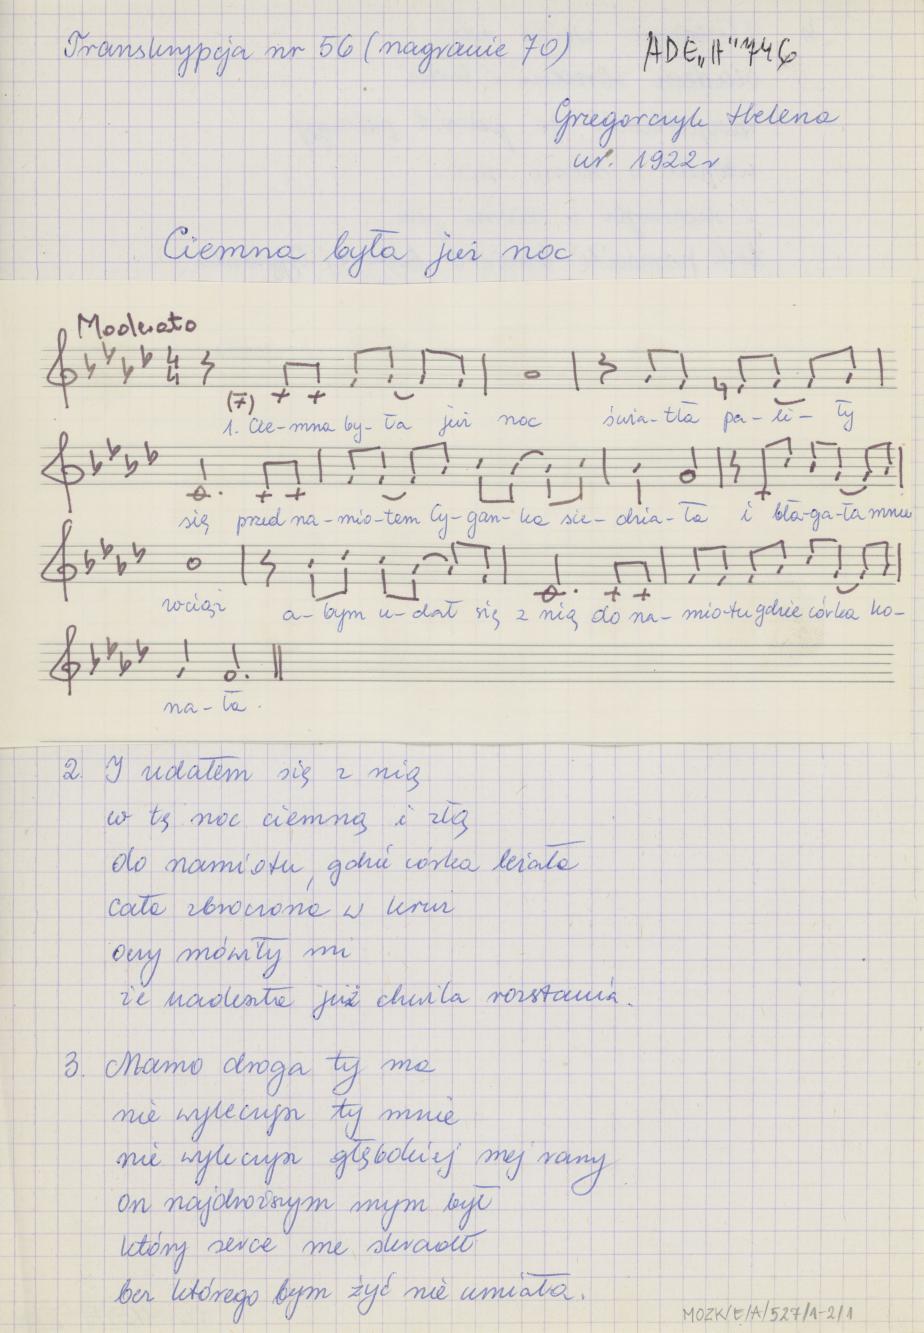 Transkrypcja nr 56 (nagranie 70) ADE„H" 746
Grzegorczyk Helena
ur. 1922r
Ciemna była już noc
Moderato
(7)
1. Cie-mna by-ła już noc świa-tła pa-li-ły
się przed na-mio-tem Cy-gan-ka sie-dzia-ła i bła-ga-ła mnie
wciąż a-bym u-dał się z nią do na-mio-tu gdzie córka ko-
na-ła.
2. I udałem się z nią
w tę noc ciemną i złą
do namiotu, gdzie córka leżała
cała zbroczona w krwi
oczy mówiły mi
że nadeszła już chwila rozstania.
3. Mamo droga ty ma
nie wyleczysz ty mnie
nie wyleczysz głębokiej mej rany
on najdroższym mym był
który serce me skradł
bez którego bym żyć nie umiała.
MOZK/E/A/527/1-2/1